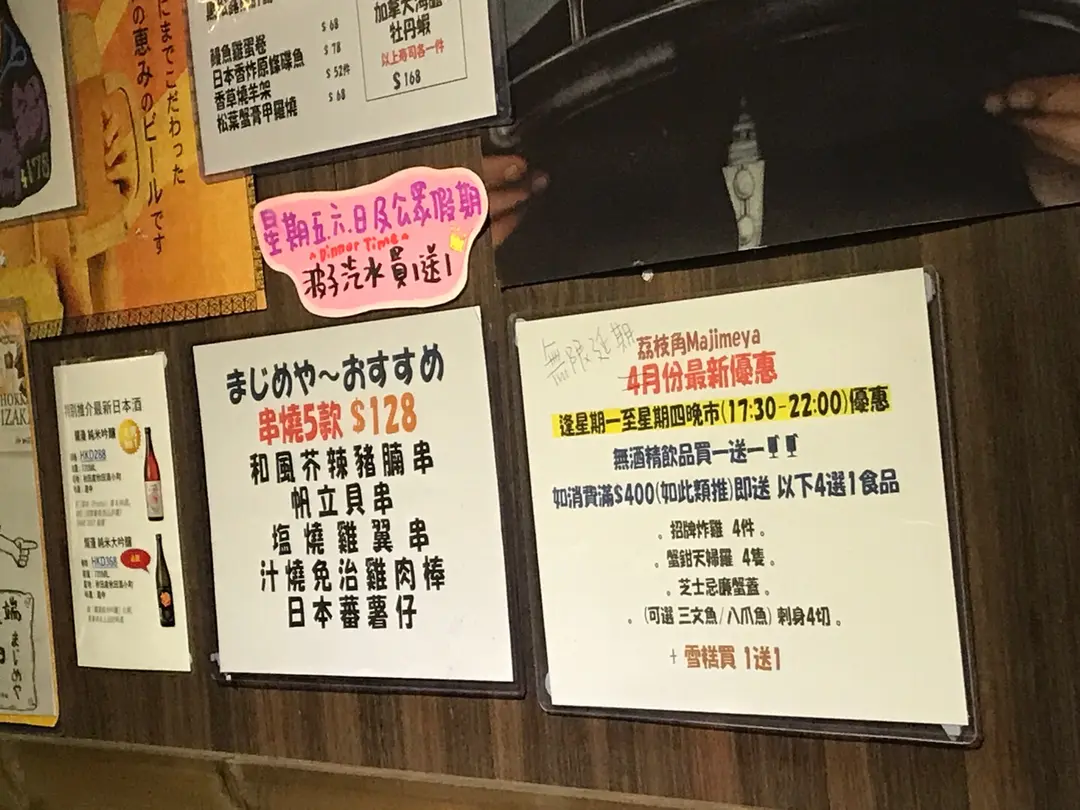 $ 68
鰻魚雞蛋卷 $ 78
日本香炸原條鰈魚 $ 52件
香草燒羊架 $ 68
松葉蟹膏甲羅燒
牡丹蝦
以上壽司各一件
$ 168
にまでこだわった
の恵みのビールです
星期五.六.日及公眾假期
Dinner Time
波子汽水買1送1
特別推介最新日本酒
純米吟釀
HKD288
純米大吟釀
HKD368
まじめや～おすすめ
串燒5款 $128
和風芥辣豬腩串
帆立貝串
塩燒雞翼串
汁燒免治雞肉棒
日本蕃薯仔
無限延期
荔枝角Majimeya
4月份最新優惠
逢星期一至星期四晚市(17:30-22:00)優惠
無酒精飲品買一送一
如消費滿$400(如此類推)即送 以下4選1食品
。招牌炸雞 4件 。
。蟹鉗天婦羅 4隻 。
。芝士忌廉蟹蓋 。
。(可選 三文魚/八爪魚) 刺身4切 。
+ 雪糕買 1送1
まじめや